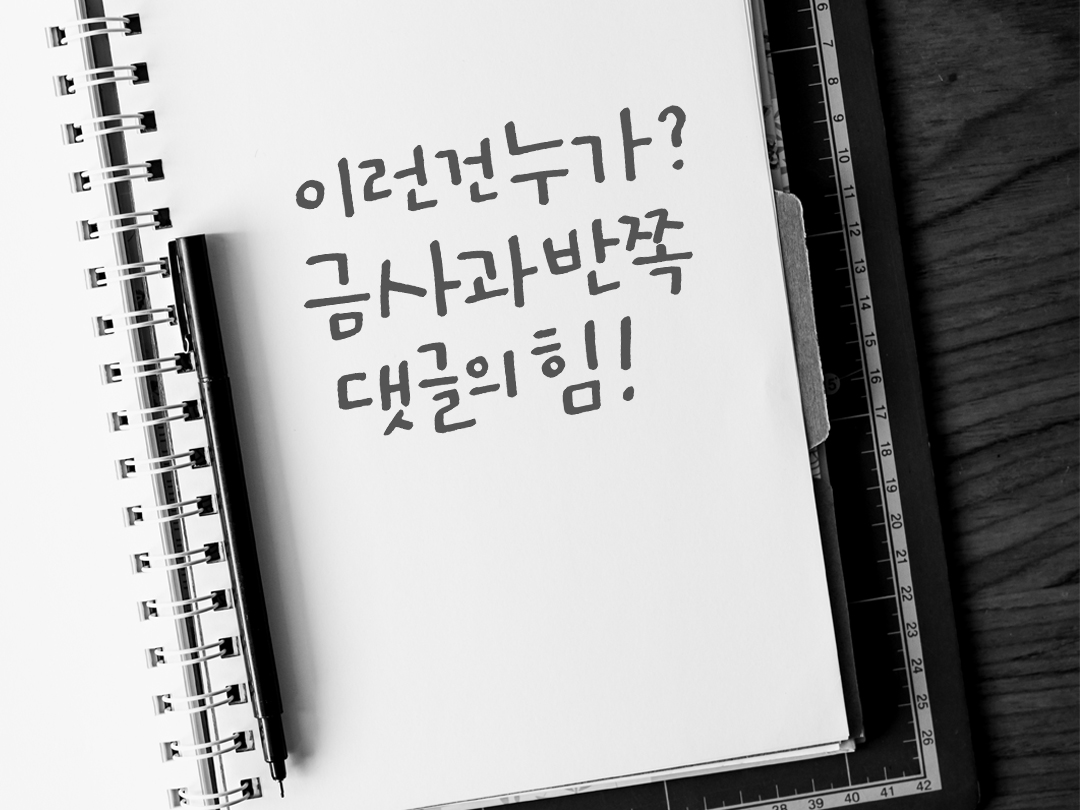 이런건누가?
금사과 반쪽
댓글의 힘!
6
7
8
9
10
11
12
13
14
15
16
17
18
19
20
21
22
23
24
25
26
38 39 40 41 42